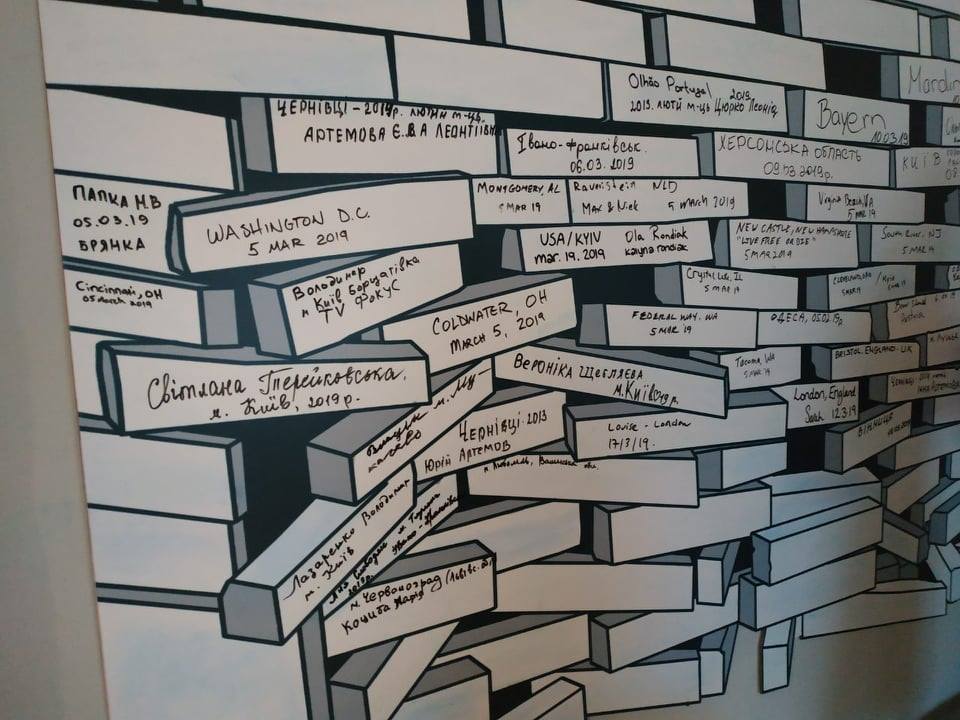 Olhão Portugal 2019
2013. лютй м-ць Цюрко Леонід
Mardin
Bayern
10.03.19
ЧЕРНІВЦІ - 2019р. лютий м-ць.
АРТЕМОВА Є.В.А ЛЕОНТІЇВНА
Івано-франківськ.
06.03.2019
ХЕРСОНСЬКА ОБЛАСТЬ
09.03.2019р.
КИЇВ
08.
ПАПКА М.В
05.03.19
БРЯНКА
WASHINGTON D.C.
5 MAR 2019
MONTGOMERY, AL
5 MAR 19
Ravenstein NLD
Max & Niek 5 march 2019
Virginia Beach, VA
5 MAR 19
USA/KYIV Ola Rondiak
Mar. 19. 2019
NEW CASTLE, NEW HAMPSHIRE
"LIVE FREE OR DIE"
5 MAR 2019
South River, NJ
5 MAR 19
Cincinnati, OH
05 March 2019
Володимир
м Київ Борщагівка
TV ФОКУС
Crystal Lake, IL
5 MAR 19
COLDWATER, OH
MARCH 5, 2019
FEDERAL WAY. WA
5 MAR 19
ОДЕСА, 05.03.19р
Світлана Терейковська.
м. Київ, 2019р.
Вероніка Щебляева
м. Київ 2019р.
Tacoma, WA
5 MAR 19
BRISTOL. ENGLAND - UK
London, England
Sarah 12.3.19
Чернівці 2013
Юрій Артемов
Louise - London
17/3/19.
ВІННИЦЯ
Лазаренко Володимир
м. Київ
м. Червоноград (Львівс. обл
Кошита Марія